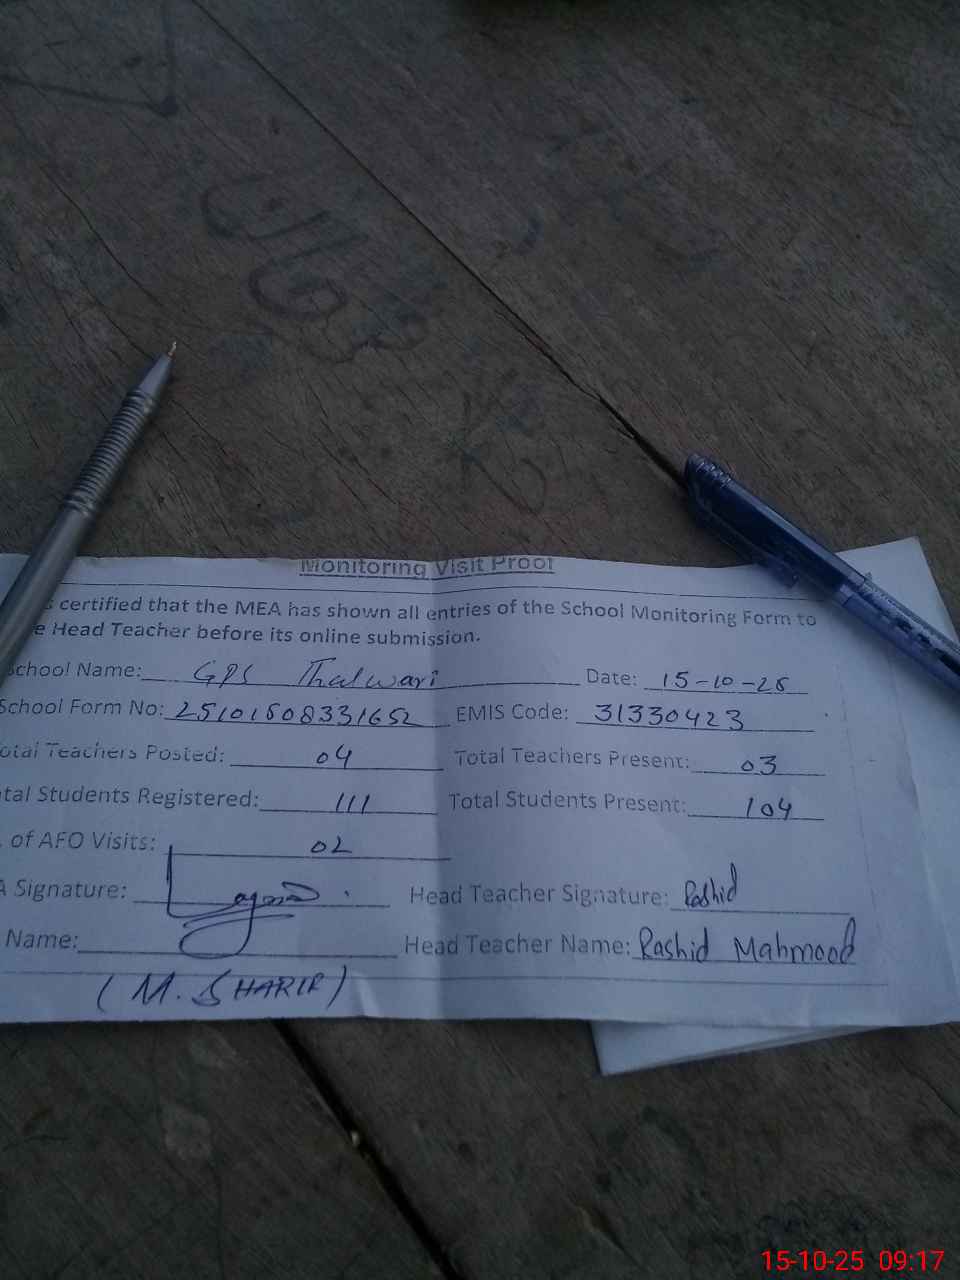 Monitoring Visit Proof
s certified that the MEA has shown all entries of the School Monitoring Form to
e Head Teacher before its online submission.
School Name: GPS Thalwari Date: 15-10-25
School Form No: 25101508331652 EMIS Code: 31330423
otal Teachers Posted: 04 Total Teachers Present: 03
tal Students Registered: 111 Total Students Present: 104
. of AFO Visits: 02
A Signature: Head Teacher Signature: Rashid
Name: Head Teacher Name: Rashid Mahmood
(M. SHARIF)
15-10-25 09:17